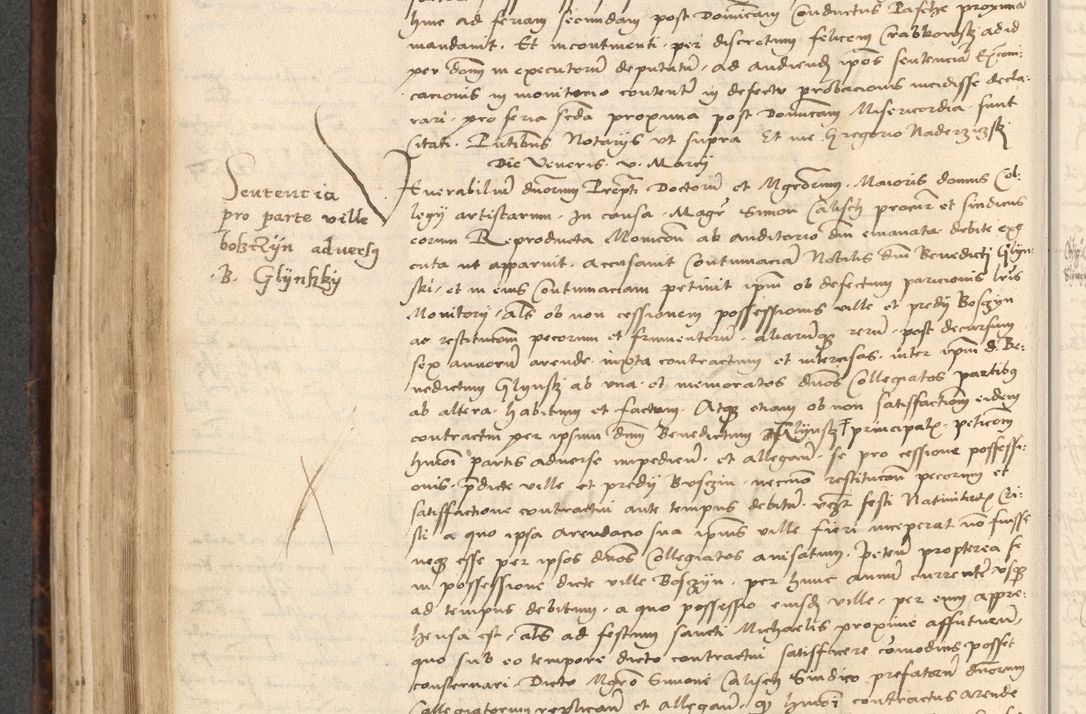 hinc ad feriam secundam post Dominicam Conductus Pasche proxima
mandavit. Et incontinenti per discretum felicem Crabkowskj ad id
per dnm in executorem deputatum, ad audiendum ipos sentenciam Excom:
cacionis in monitorio contentam in defectu probacionis incidisse decla:
rari, pro feria scda proxima post Dominicam Misericordia sunt
Citati. Pntibus Notarijs ut supra Et me Gregorio
Die Veneris. v. Marcij
Sentencia
pro parte ville
bolsczyn adversq
B. Glynsky
Venerabilium dnorum Prepti Doctorum et Mgrorum Maioris domus Col:
legij artistarum. In causa Magr Simon Calisch procur et sindicus
eorum Reproducta Monicon ab auditorio dni emanata debite exq
cuta ut apparuit. Accusavit Contumaciam Nobilis dni Benedicti Glyn:
ski, et in eius Contumaciam petiuit ipm ob defectum paricionis lris
Monitorij, als ob non cessionem possessionis ville et predij Bosczyn
ac restitucom pecorum et frumentorum, aliarumq rerum post decursum
sex annorum arende, iuxta contractum et intercisas inter ipm d. Be:
nedictum Glynskj ab una et memoratos dnos Collegiatos partibq
ab altera, habitum et factum. Atq etiam ob non satisfactiom eidem
contractui per ipsum dnm Benedictum Glynskj principalr peticom
hmoi partis adverse impedien. et allegan. se pro cessione possessi:
onis pdicte ville et predij Bosczin necnon restitucon pecorum et
satisfactione contractui ante tempus debitum, vczt festi Nativitatis Cri:
sti, a quo ipsa arendacio sua ipius ville fieri inceperat non fuisse
neq esse per ipsos dnos Collegiatos avisatum. Peten propterea se
in possessione dicte ville Bosczyn per hunc annum currentem usq
ad tempus debitum, a quo possessio eiusd ville, per eum appre:
hensa est, als ad festum sancti Michaelis proxime affuturum,
quo sub eo tempore dicto contractui satisfacere comodius posset
conservari. Dicto Mgro Simone Calisch Sindico prefatorum dnorum
Collegiatorum replican et allegan. q hmoi contractus arende